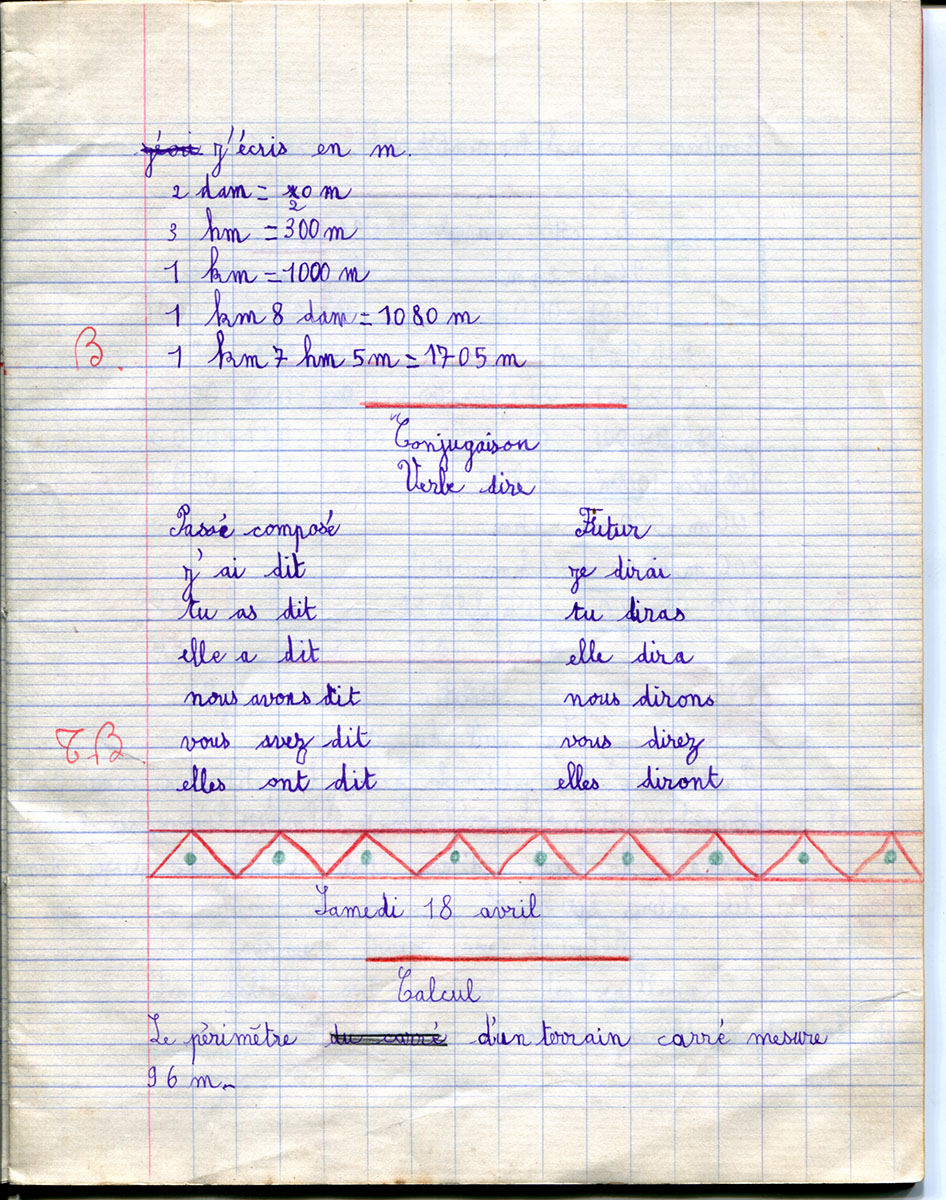 j'écris en m.
2 dam = 20 m
3 hm = 300 m
1 km = 1000 m
1 km 8 dam = 1080 m
B. 1 km 7 hm 5 m = 1705 m
Conjugaison
Verbe dire
Passé composé Futur
j'ai dit je dirai
tu as dit tu diras
elle a dit elle dira
nous avons dit nous dirons
TB. vous avez dit vous direz
elles ont dit elles diront
Samedi 18 avril
Calcul
Le périmètre du carré d'un terrain carré mesure
96 m.